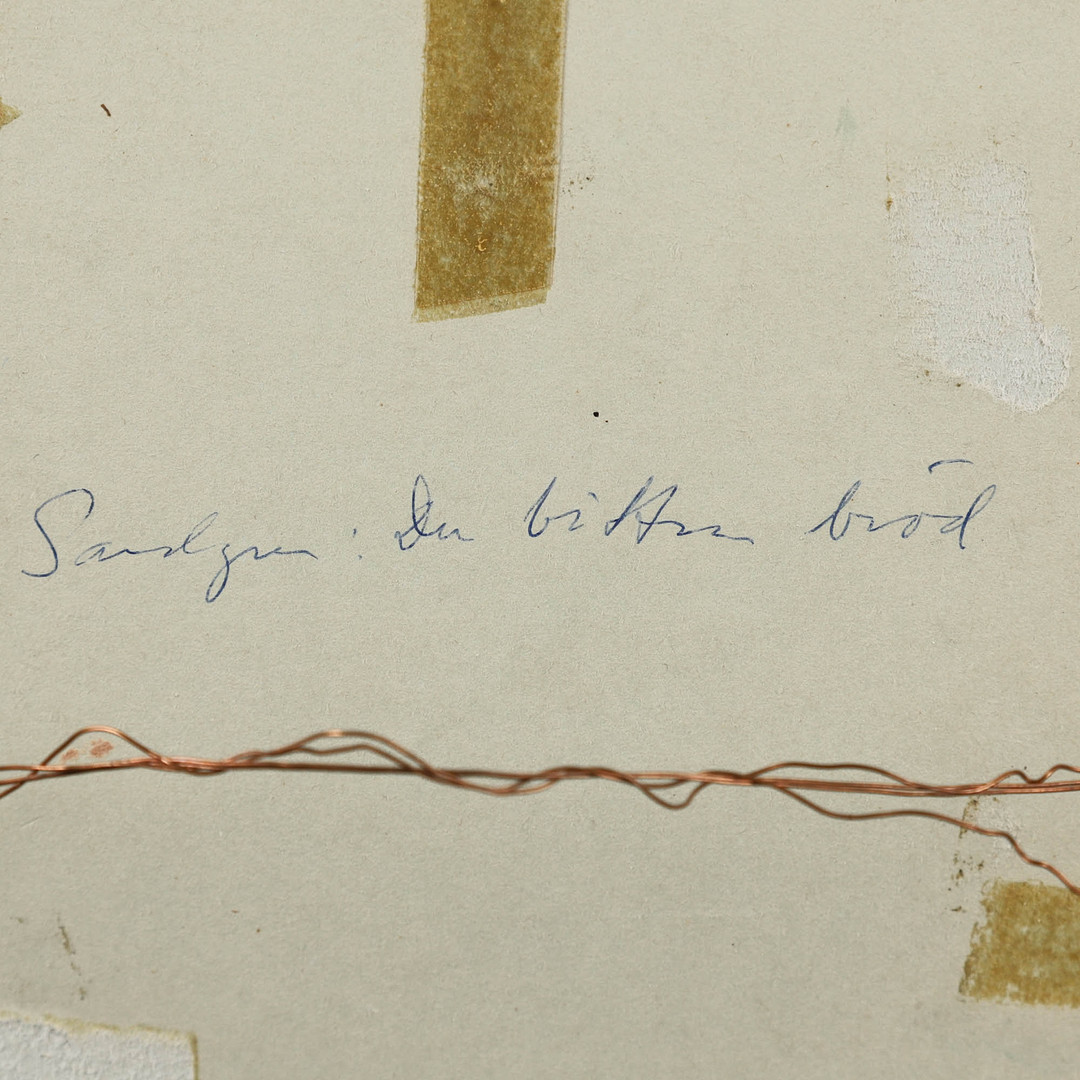 Sandgren : Du bittra bröd